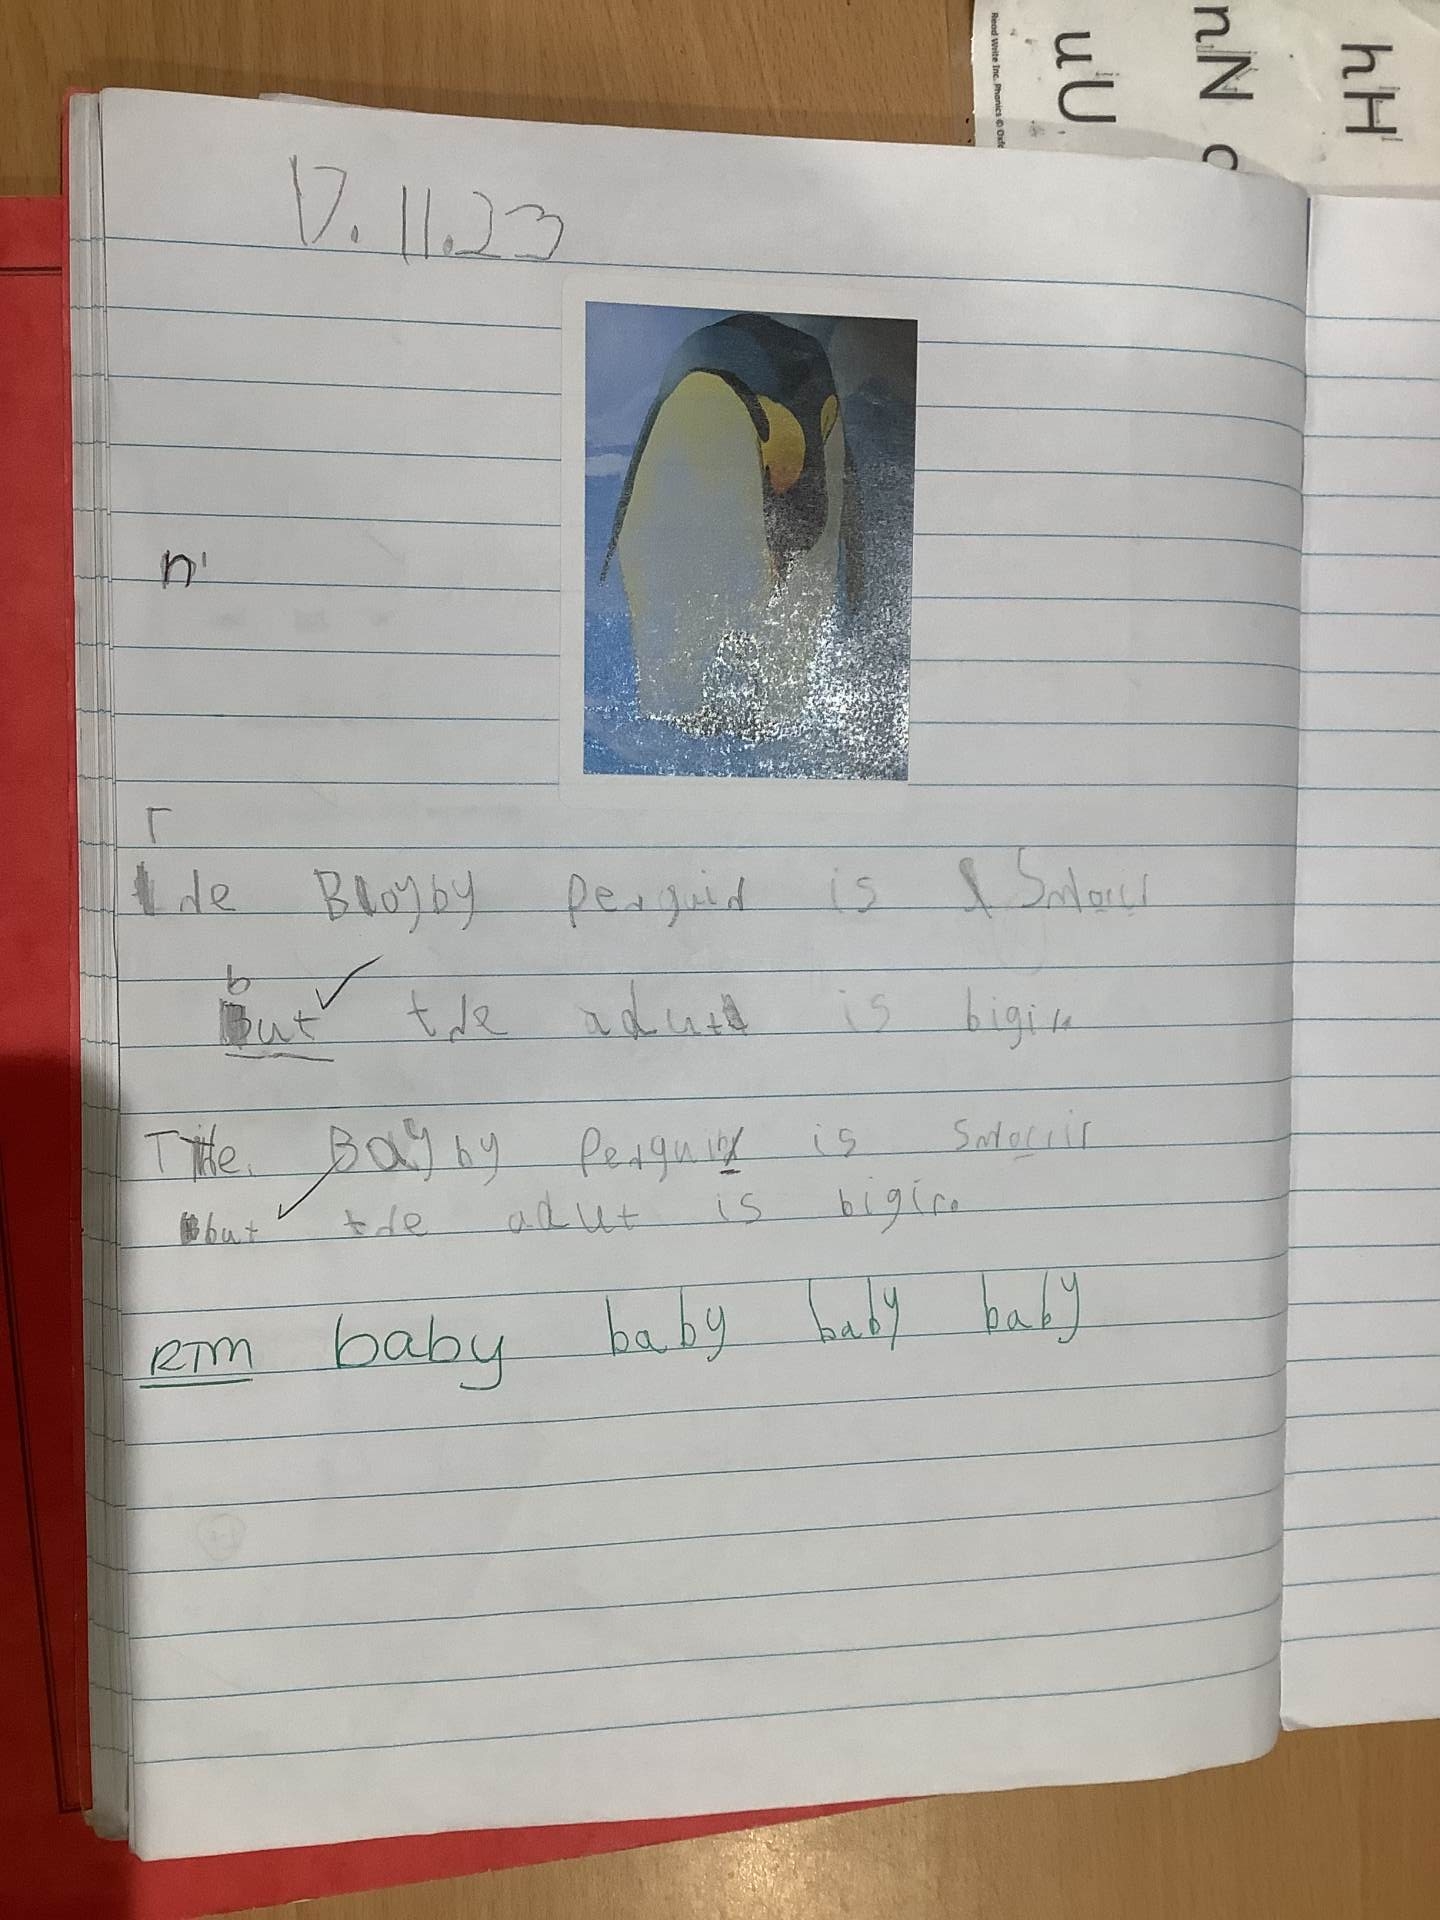 hH
nN
uU
Read Write Inc. Phonics ©
17.11.23
n
T
the Bayby penguin is Smolir
b
But the adut is bigir.
The Bayby Penguin is smolir
but the adut is bigir.
RTM baby baby baby baby